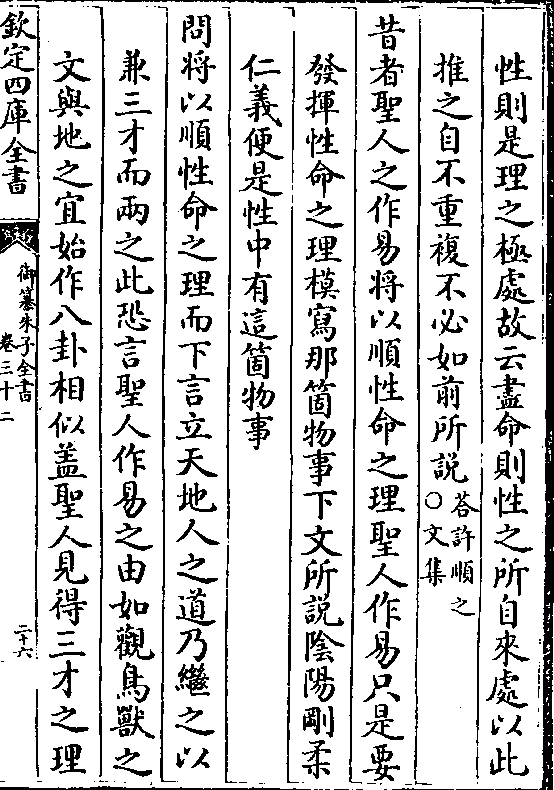 性則是理之極處故云盡命則性之所自來處以此
推之自不重複不必如前所說答許順之○文集
昔者聖人之作易將以順性命之理聖人作易只是要
發揮性命之理模寫那箇物事下文所說陰陽剛柔
仁義便是性中有這箇物事
問將以順性命之理而下言立天地人之道乃繼之以
兼三才而兩之此恐言聖人作易之由如觀鳥獸之
文與地之宜始作八卦相似蓋聖人見得三才之理
欽定四庫全書
御纂朱子全書
卷三十二
二十六